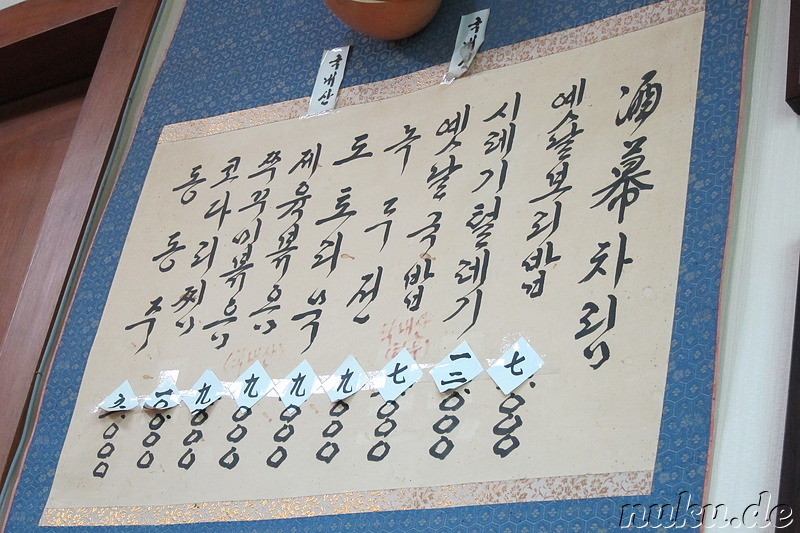 국내산
酒幕차림
옛날보리밥 七.000
시레기털레기
옛날국밥 七.000
녹두전 九.000
도토리묵 九.000
제육볶음 九.000
쭈꾸미볶음 九.000
코다리찜
동동주 六.000
국내산
nuku.de